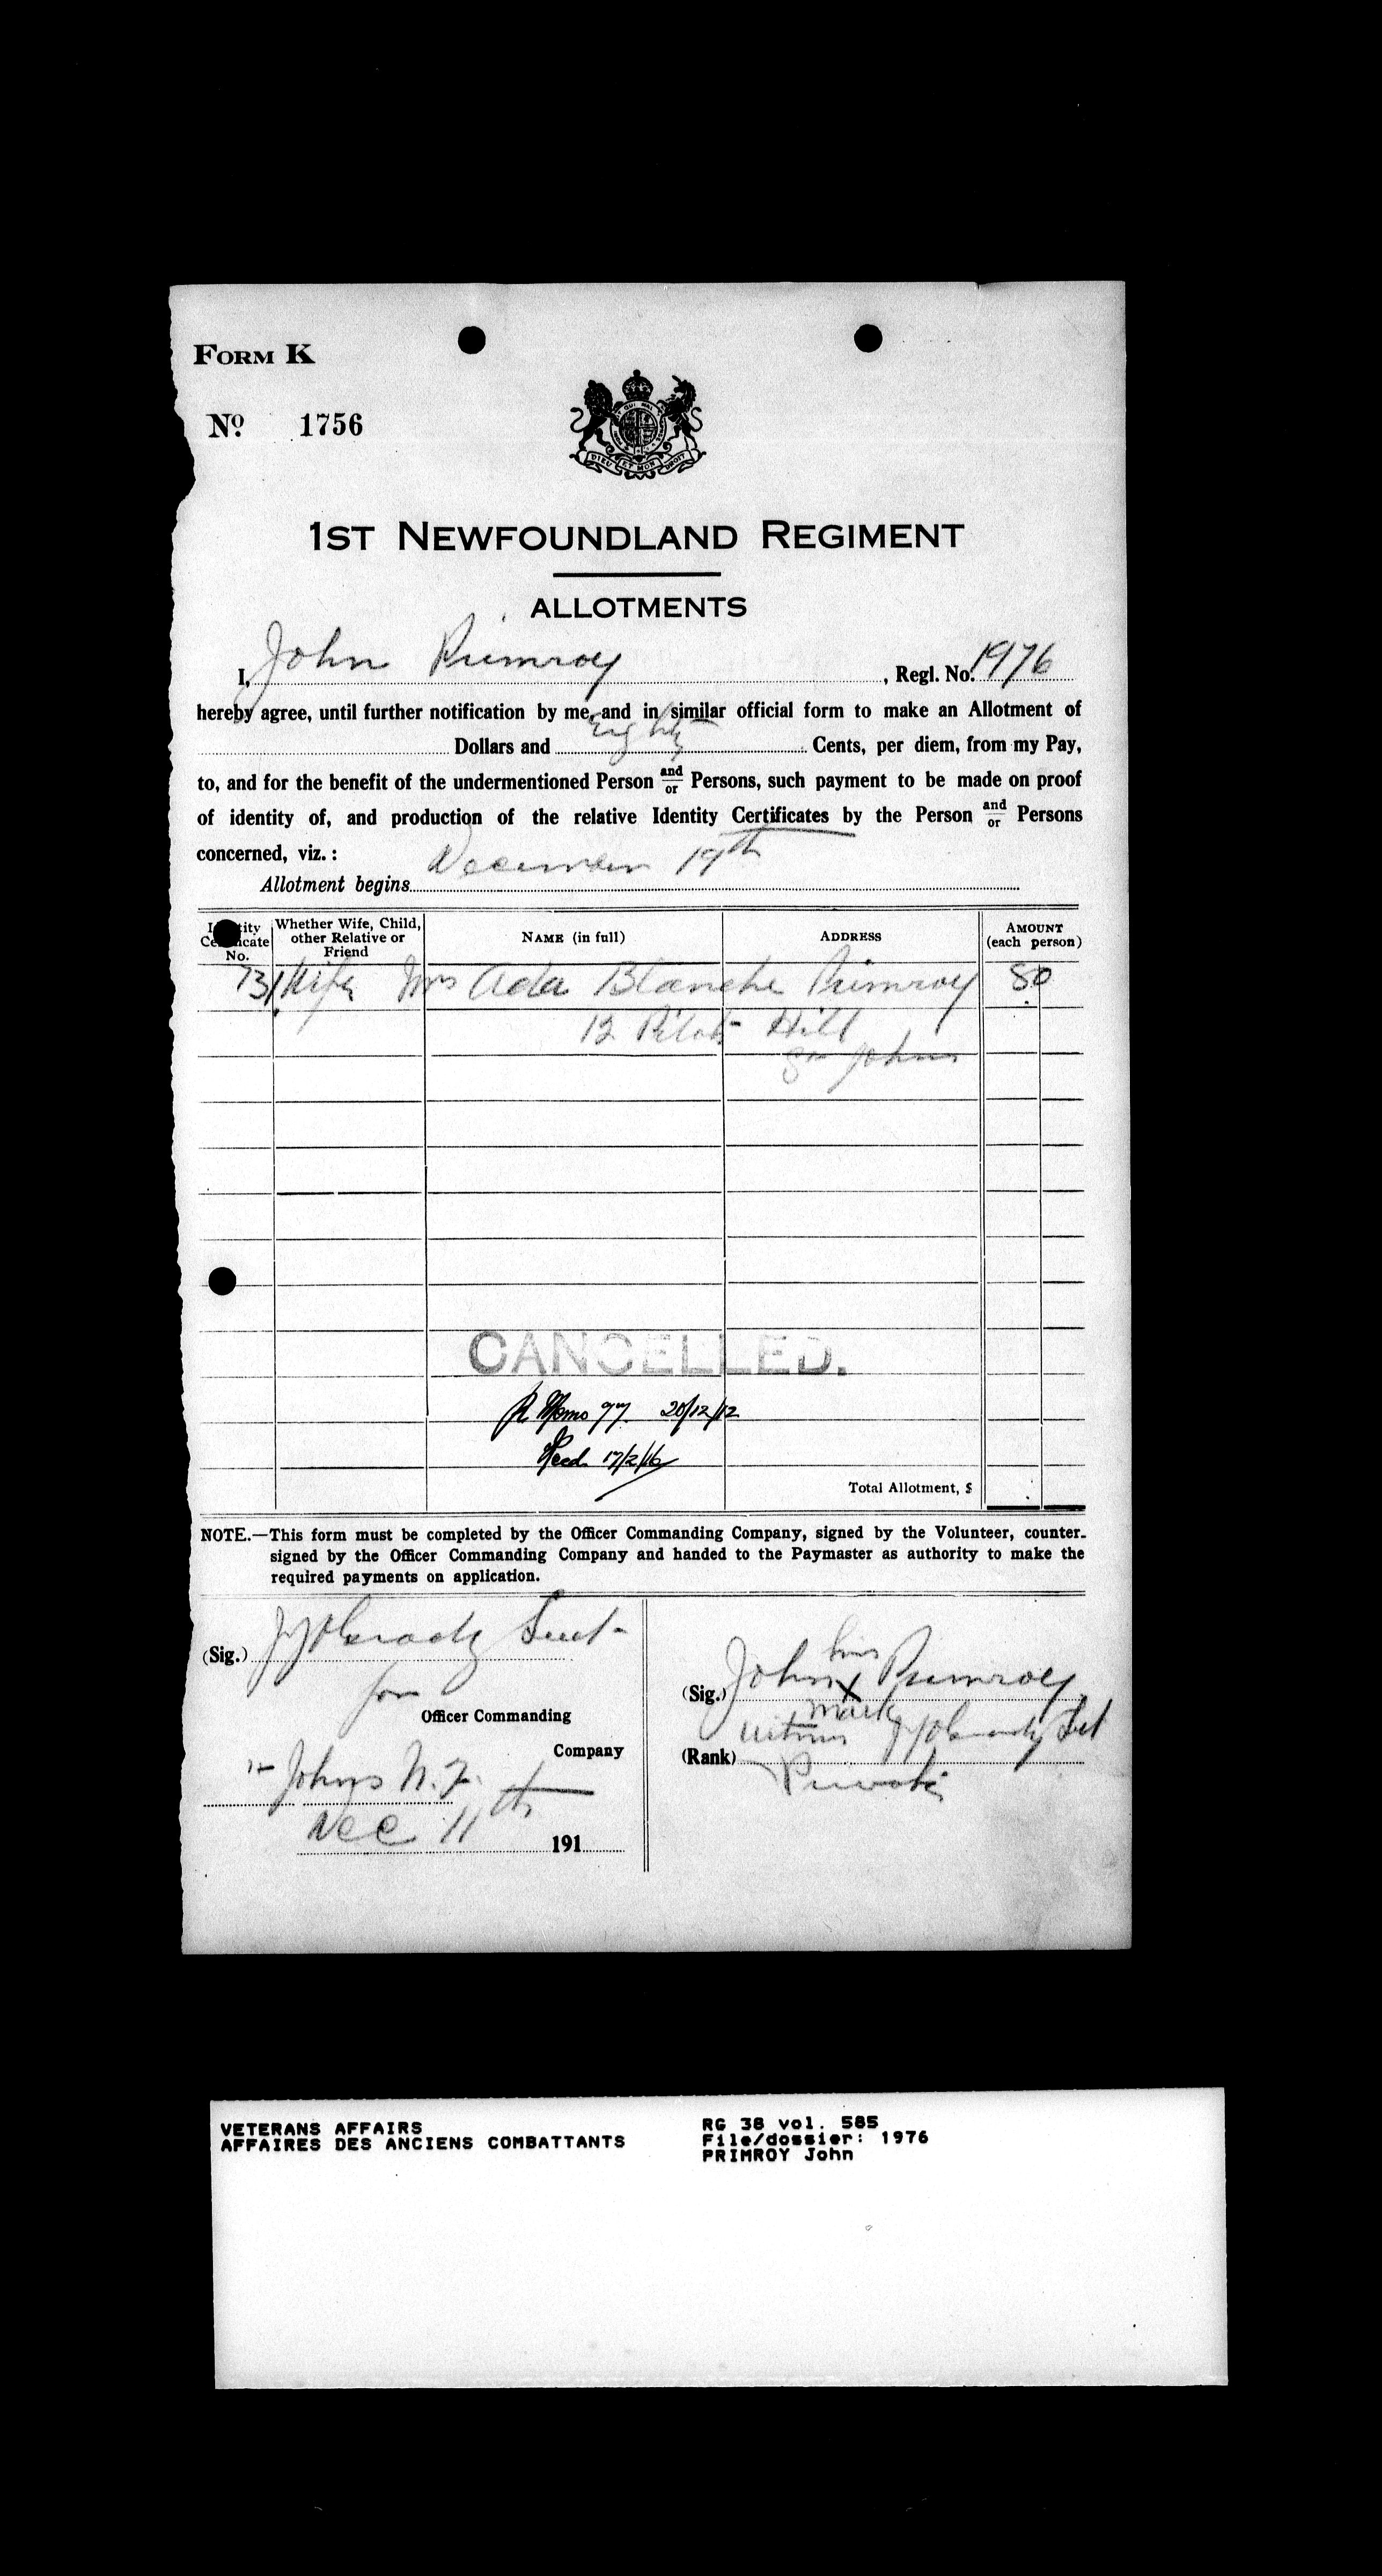 FORM K
No. 1756
DIEU ET MON DROIT
1ST NEWFOUNDLAND REGIMENT
ALLOTMENTS
I, John Primroy, Regl. No. 1976
hereby agree, until further notification by me, and in similar official form to make an Allotment of
Dollars and Eighty Cents, per diem, from my Pay,
to, and for the benefit of the undermentioned Person and/or Persons, such payment to be made on proof
of identity of, and production of the relative Identity Certificates by the Person and/or Persons
concerned, viz.:
Allotment begins December 19th
Identity Certificate No. Whether Wife, Child, other Relative or Friend NAME (in full) ADDRESS AMOUNT (each person)
731 Wife Mrs Ada Blanche Primroy 80
12 Pilot Hill
St Johns
CANCELLED.
Memo 97. 20/12/12
Recd. 17/2/16
Total Allotment, $
NOTE.—This form must be completed by the Officer Commanding Company, signed by the Volunteer, counter-
signed by the Officer Commanding Company and handed to the Paymaster as authority to make the
required payments on application.
(Sig.) Lieut
for
Officer Commanding
Company
St Johns N.F.
Dec 11th 191
his
(Sig.) John X Primroy
mark
witness
(Rank) Private
VETERANS AFFAIRS
AFFAIRES DES ANCIENS COMBATTANTS
RG 38 vol. 585
File/dossier: 1976
PRIMROY John